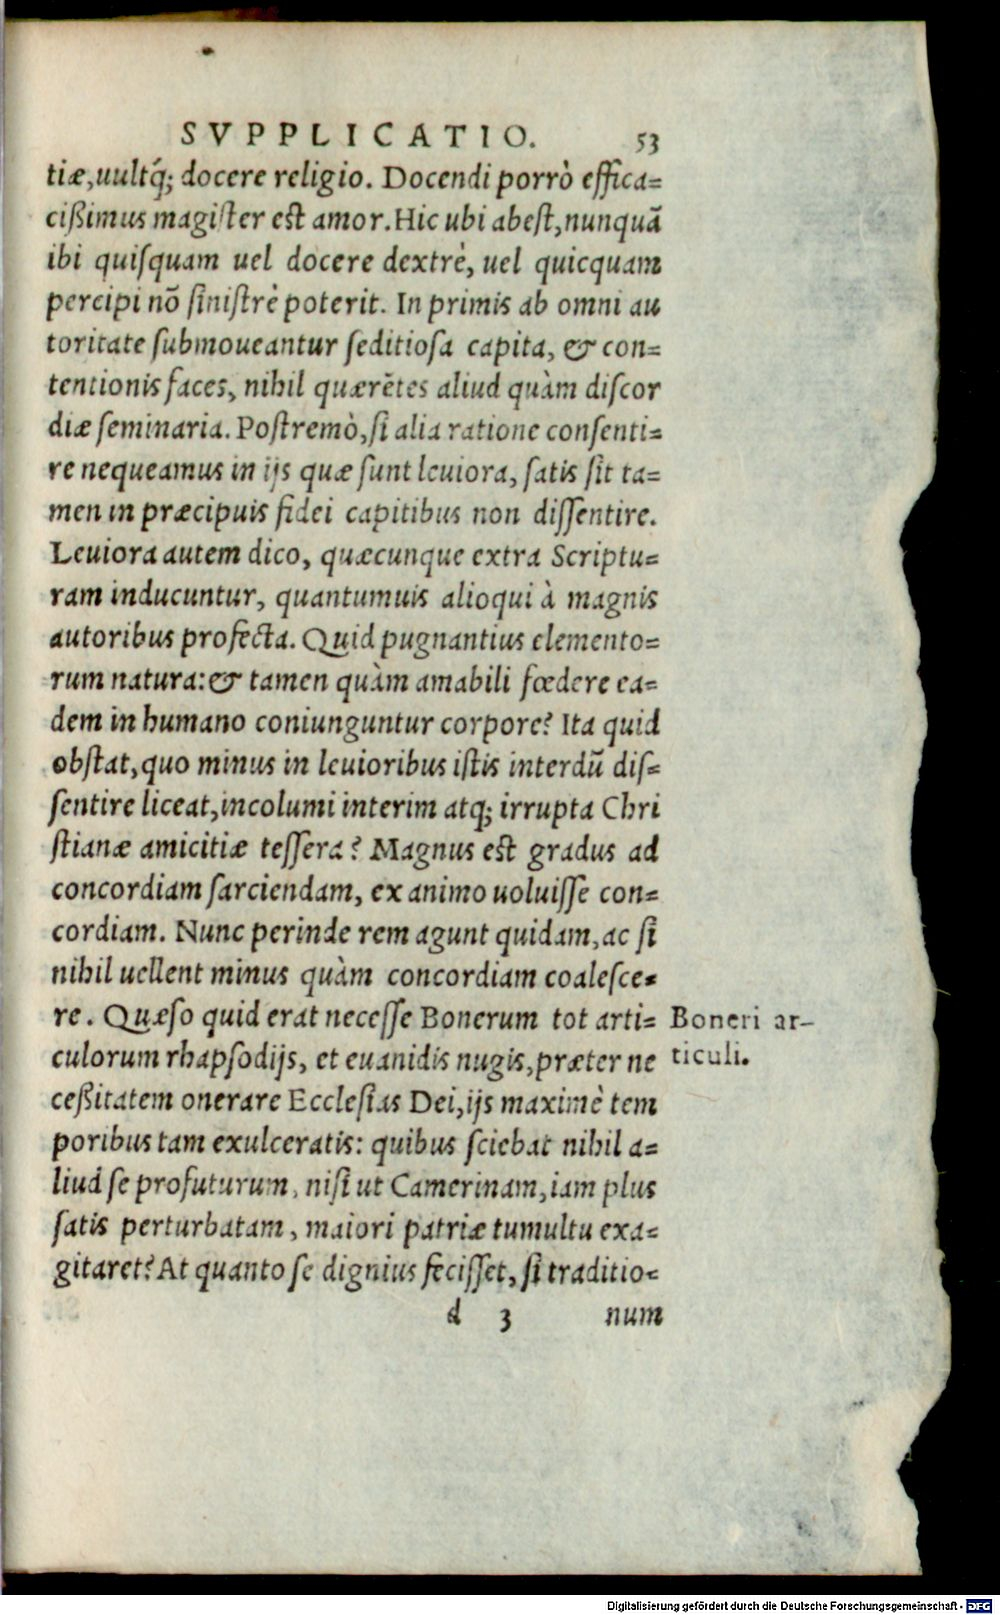 SVPPLICATIO. 53
tiæ, uultq́; docere religio. Docendi porrò effica=
cißimus magiſter eſt amor. Hic ubi abeſt, nunquã
ibi quiſquam uel docere dextrè, uel quicquam
percipi nõ ſiniſtrè poterit. In primis ab omni au
toritate ſubmoueantur ſeditioſa capita, & con=
tentionis faces, nihil quærẽtes aliud quàm diſcor
diæ ſeminaria. Poſtremò, ſi alia ratione conſenti=
re nequeamus in ijs quæ ſunt leuiora, ſatis ſit ta=
men in præcipuis fidei capitibus non diſſentire.
Leuiora autem dico, quæcunque extra Scriptu=
ram inducuntur, quantumuis alioqui à magnis
autoribus profecta. Quid pugnantius elemento=
rum natura: & tamen quàm amabili fœdere ea=
dem in humano coniunguntur corpore? Ita quid
obſtat, quo minus in leuioribus iſtis interdũ diſ=
ſentire liceat, incolumi interim atq; irrupta Chri
ſtianæ amicitiæ teſſera? Magnus eſt gradus ad
concordiam ſarciendam, ex animo uoluiſſe con=
cordiam. Nunc perinde rem agunt quidam, ac ſi
nihil uellent minus quàm concordiam coaleſce=
re. Quæſo quid erat neceſſe Bonerum tot arti=
Boneri ar-
culorum rhapſodijs, et euanidis nugis, præter ne
ticuli.
ceßitatem onerare Eccleſias Dei, ijs maximè tem
poribus tam exulceratis: quibus ſciebat nihil a=
liud ſe profuturum, niſi ut Camerinam, iam plus
ſatis perturbatam, maiori patriæ tumultu exa=
gitaret? At quanto ſe dignius feciſſet, ſi traditio=
d 3 num
Digitalisierung gefördert durch die Deutsche Forschungsgemeinschaft - DFG